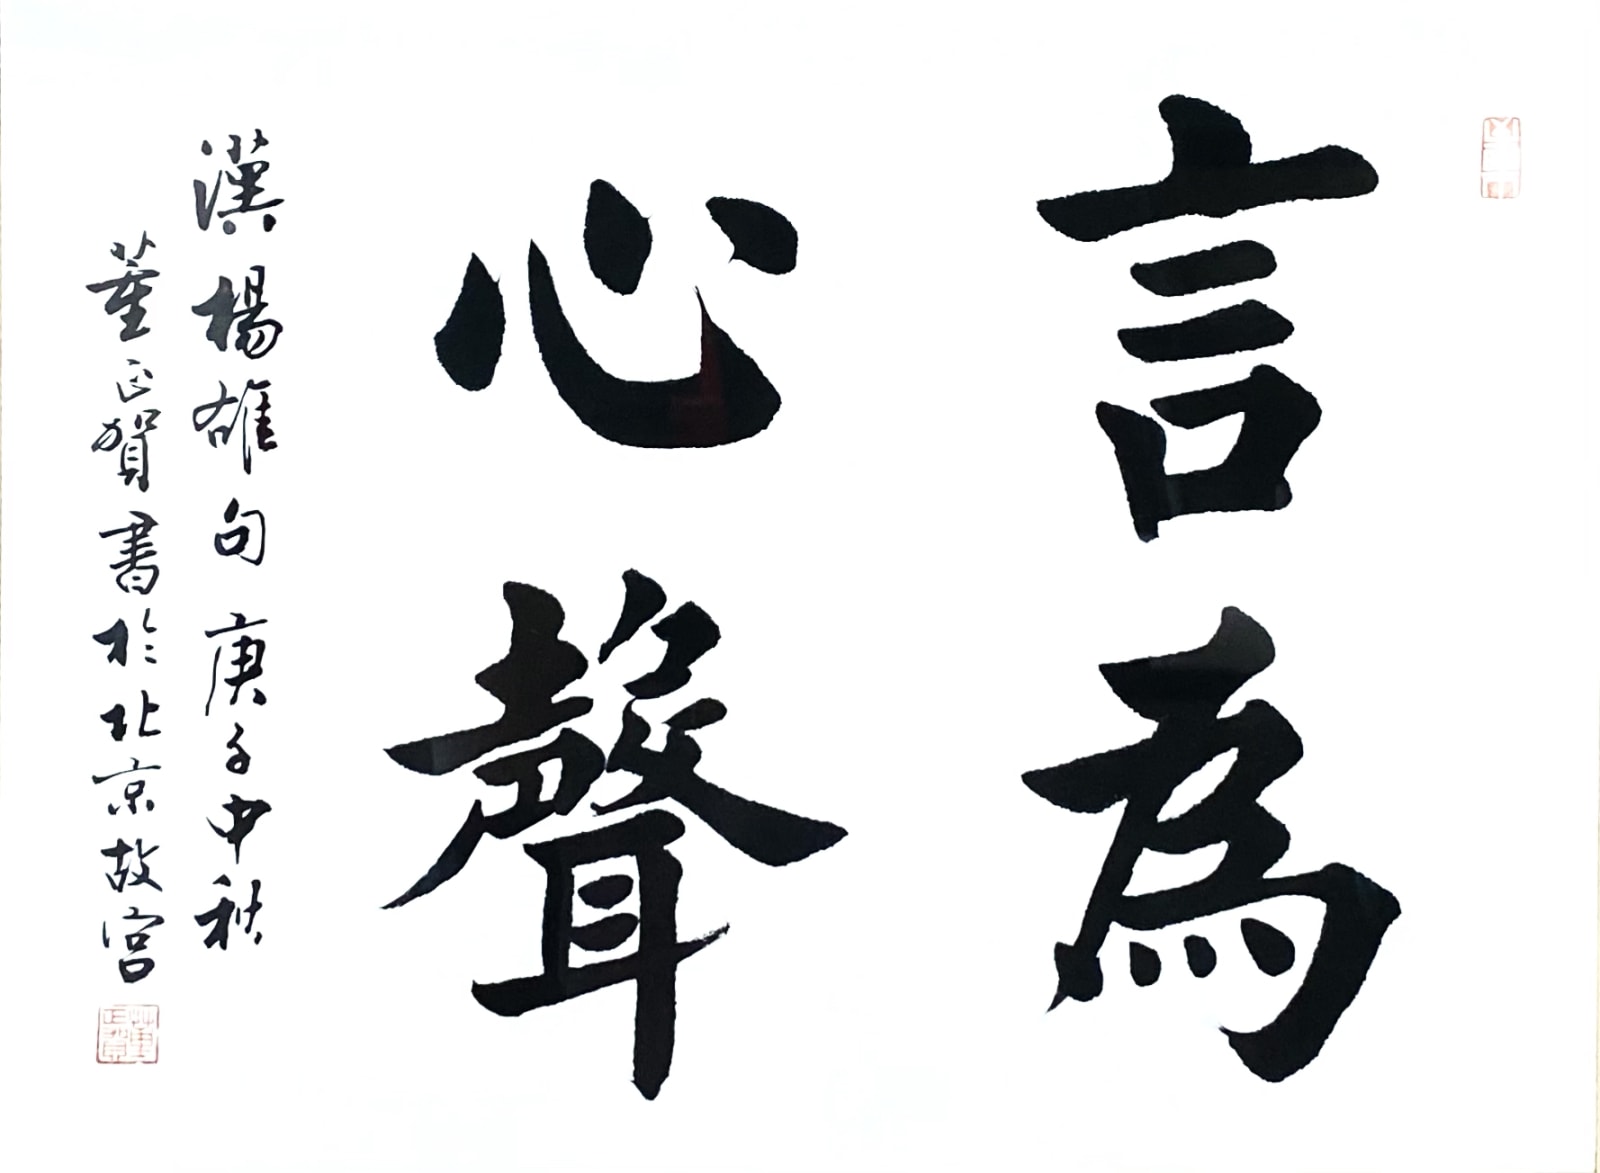 言為
心聲
漢楊雄句庚子中秋
董正賀書於北京故宮
董正賀